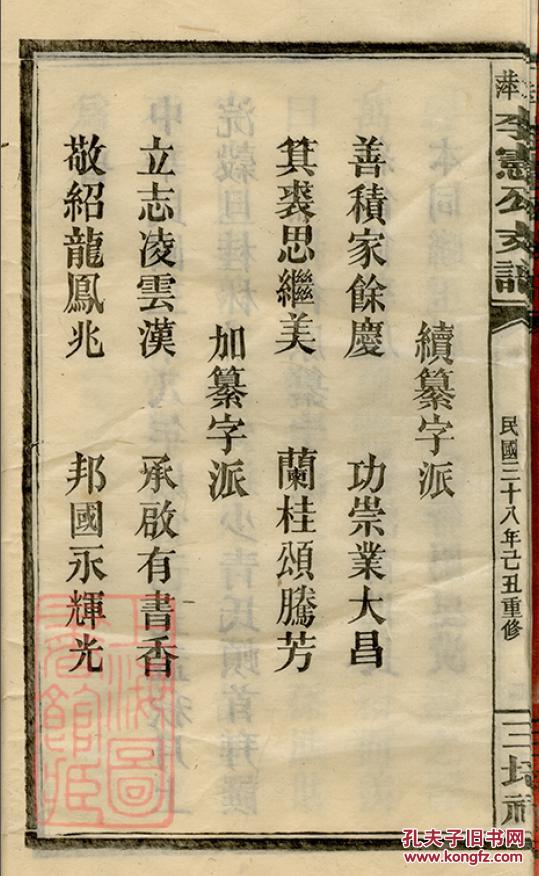 李憲公支譜
民國三十八年己丑重修
三
續纂字派
善積家餘慶 功崇業大昌
箕裘思繼美 蘭桂頌騰芳
加纂字派
立志凌雲漢 承啟有書香
敬紹龍鳳兆 邦國永輝光
孔夫子旧书网
www.kongfz.com